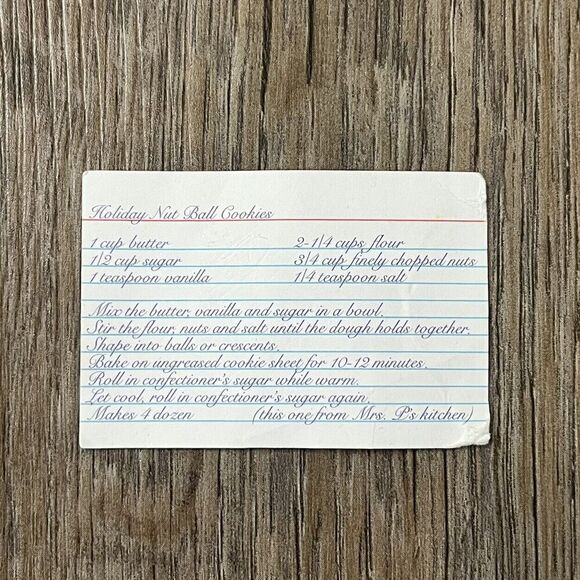 Holiday Nut Ball Cookies
1 cup butter 2-1/4 cups flour
1/2 cup sugar 3/4 cup finely chopped nuts
1 teaspoon vanilla 1/4 teaspoon salt
Mix the butter, vanilla and sugar in a bowl.
Stir the flour, nuts and salt until the dough holds together.
Shape into balls or crescents.
Bake on ungreased cookie sheet for 10-12 minutes.
Roll in confectioner's sugar while warm.
Let cool, roll in confectioner's sugar again.
Makes 4 dozen (this one from Mrs. P's kitchen)